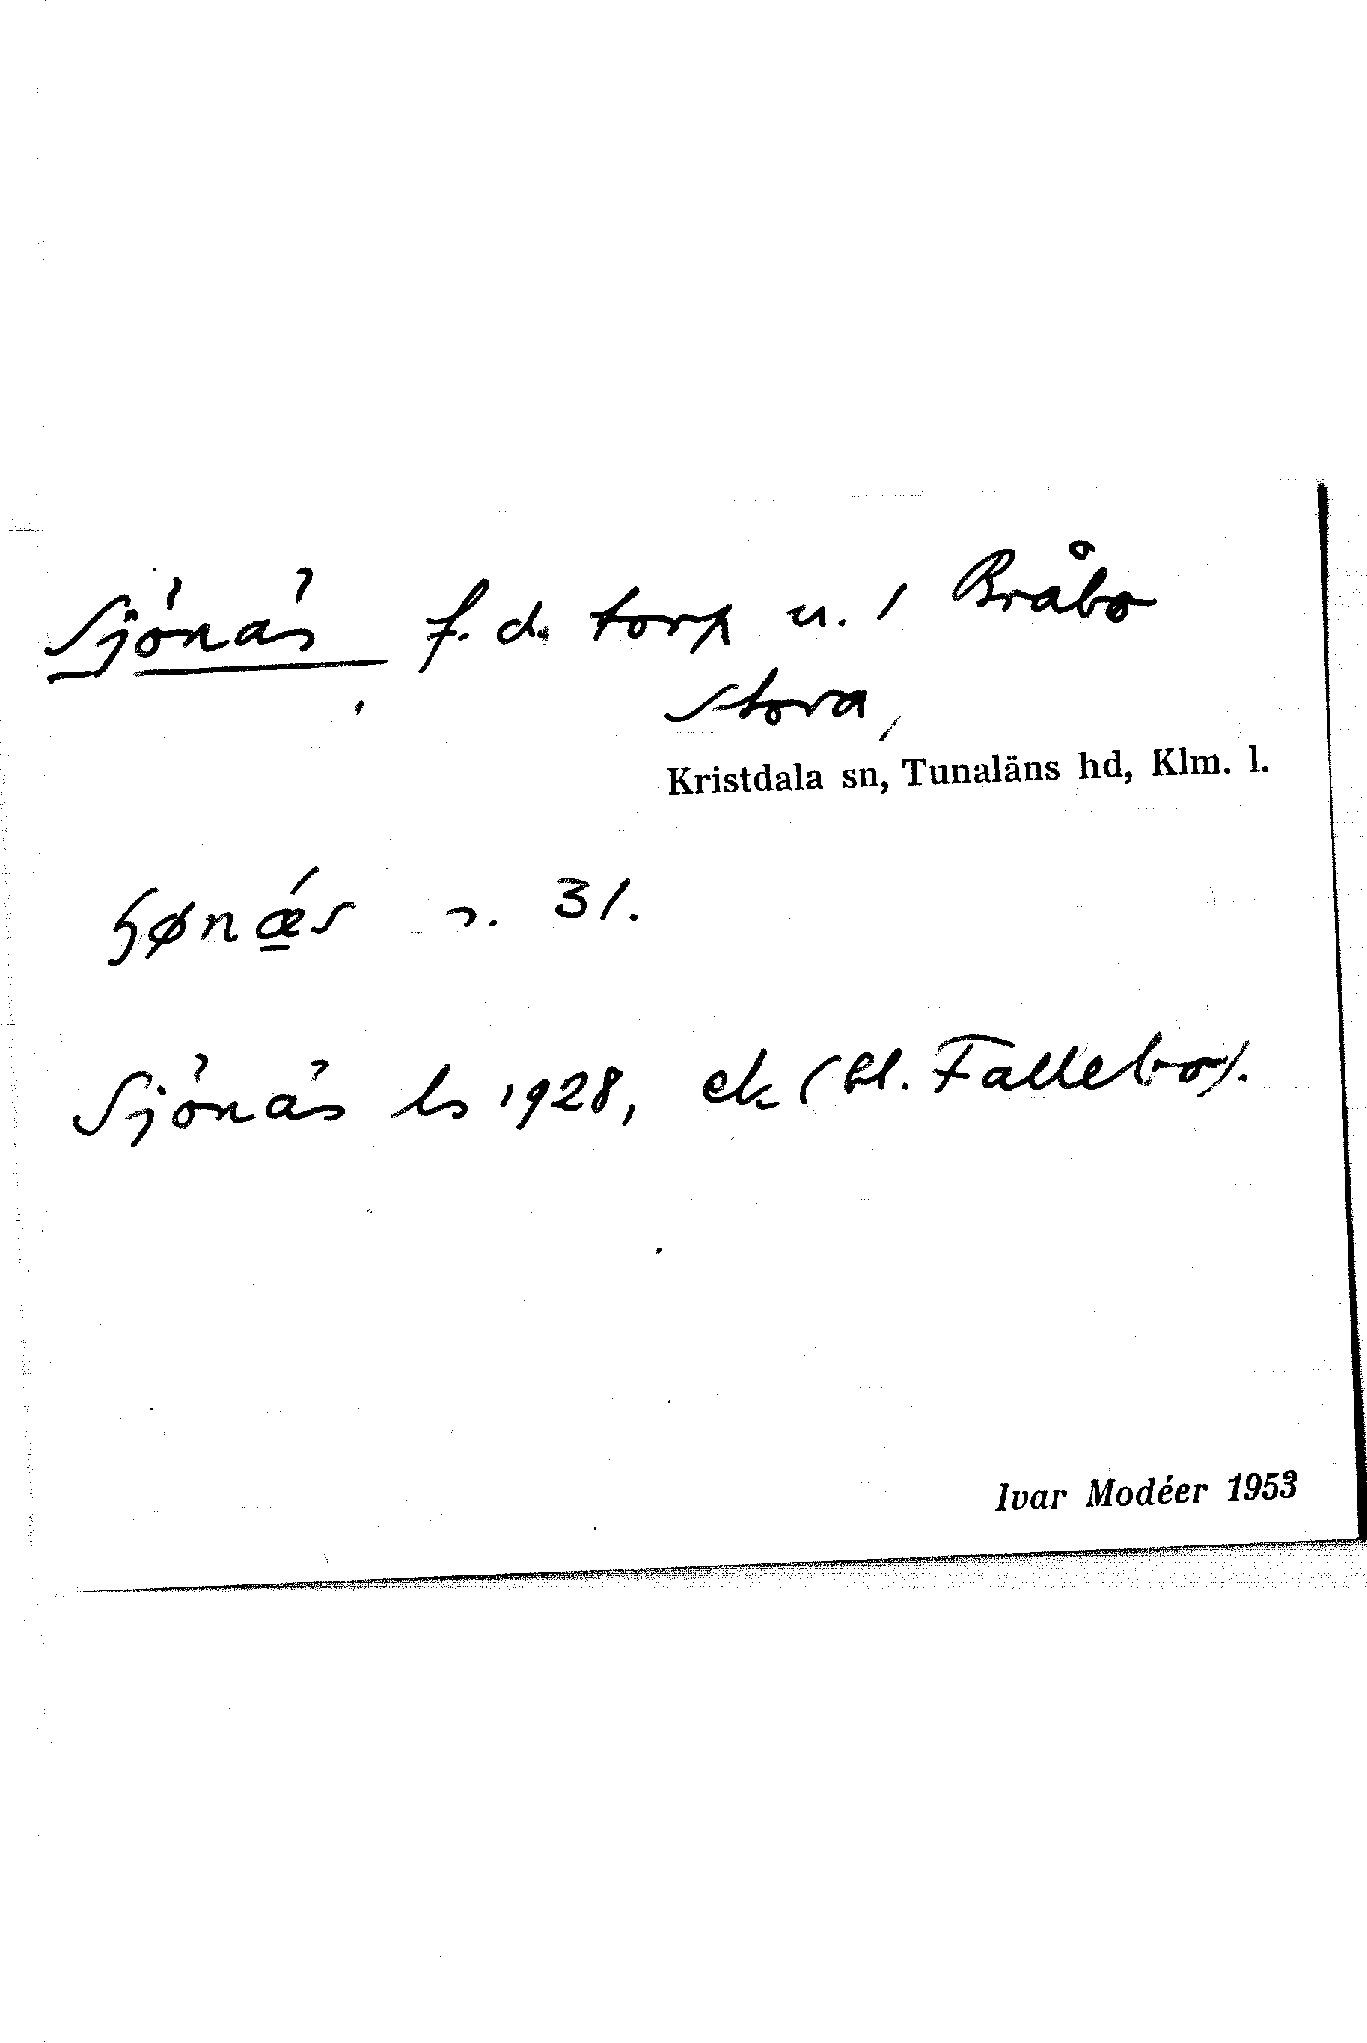 Sjönäs f. d. torp u. 1 Bråbo
Stora,
Kristdala sn, Tunaläns hd, Klm. l.
ɧønǽs s. 31.
Sjönäs ls 1928, ek (bl. Fallebo).
Ivar Modéer 1953